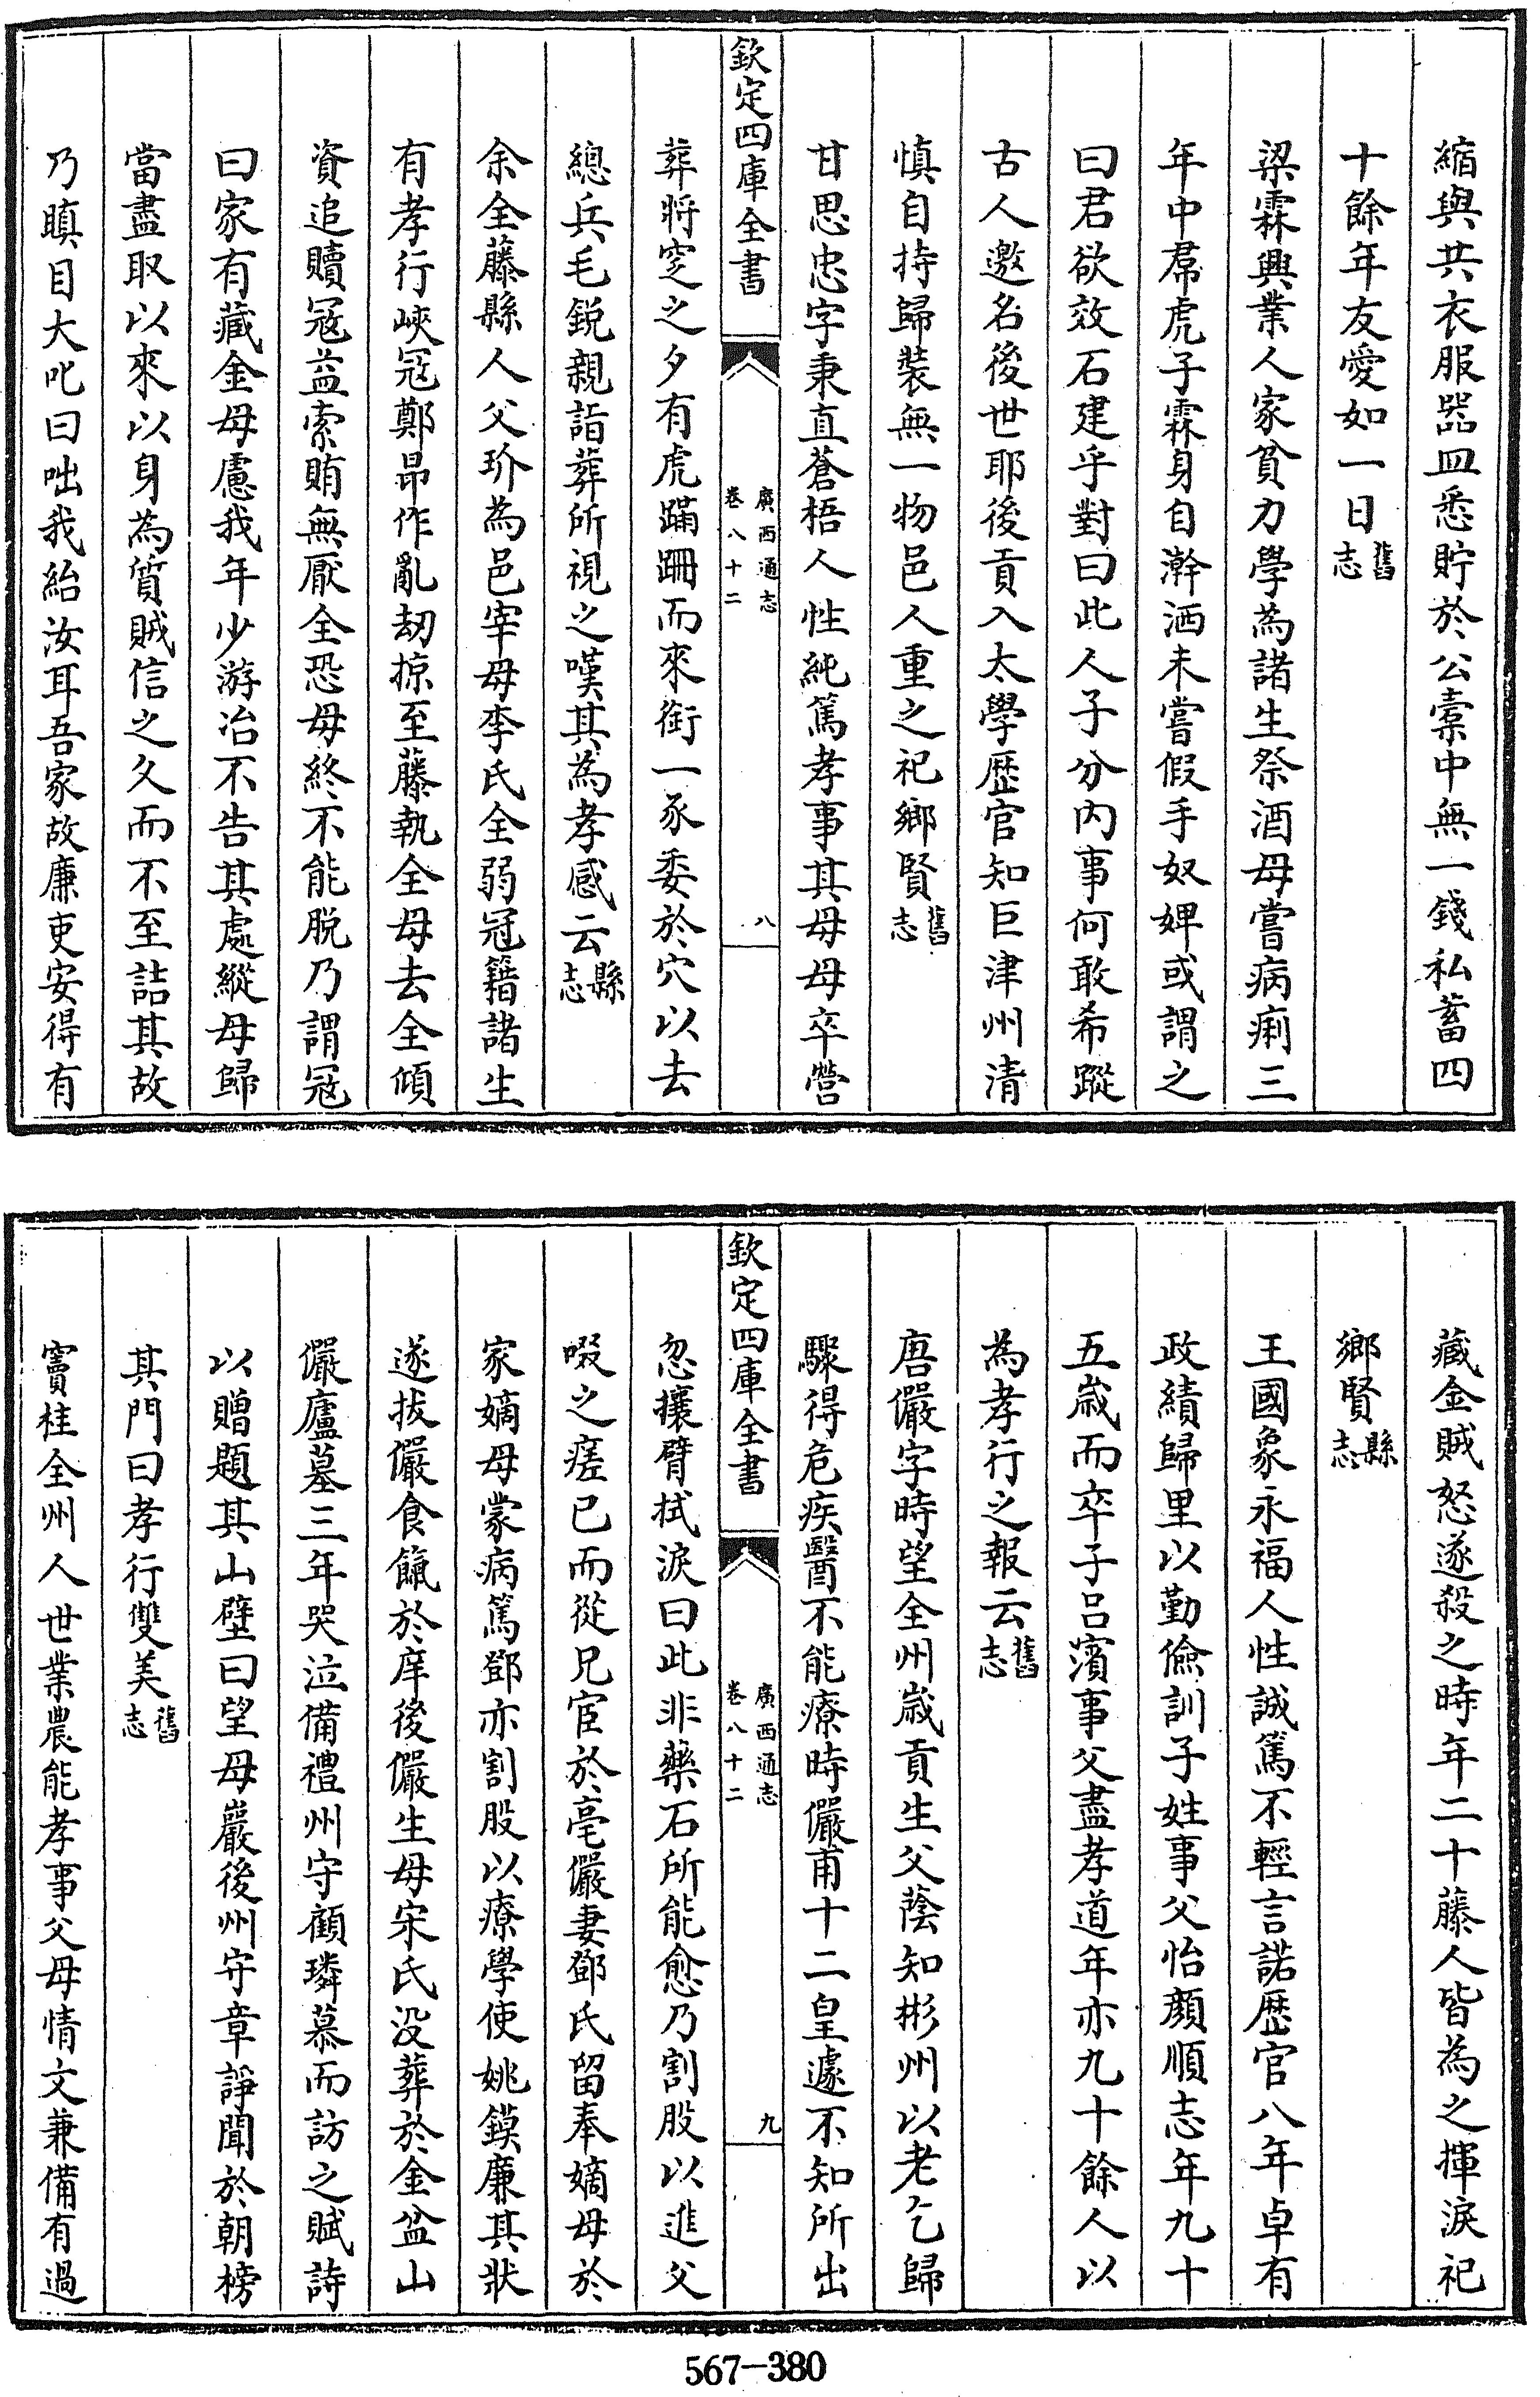 縮與共衣服器皿悉貯於公橐中無一錢私蓄四
十餘年友愛如一日舊志
梁霖興業人家貧力學為諸生祭酒母嘗病痢三
年中帬虎子霖身自澣洒未嘗假手奴婢或謂之
曰君欲效石建乎對曰此人子分内事何敢希蹤
古人邀名後世耶後貢入太學歴官知巨津州清
慎自持歸裝無一物邑人重之祀鄉賢舊志
甘思忠字秉直蒼梧人性純篤孝事其母母卒營
欽定四庫全書
廣西通志
卷八十二
八
葬將窆之夕有虎蹣跚而來銜一豕委於穴以去
總兵毛鋭親詣葬所視之嘆其為孝感云縣志
余全藤縣人父玠為邑宰母李氏全弱冠籍諸生
有孝行峽冦鄭昻作亂刼掠至藤執全母去全傾
資追贖冦益索賄無厭全恐母終不能脱乃謂冦
曰家有藏金母慮我年少游冶不告其處縱母歸
當盡取以來以身為質賊信之久而不至詰其故
乃瞋目大叱曰咄我紿汝耳吾家故廉吏安得有
藏金賊怒遂殺之時年二十藤人皆為之揮淚祀
鄉賢縣志
王國象永福人性誠篤不輕言諾歴官八年卓有
政績歸里以勤儉訓子姓事父怡顔順志年九十
五嵗而卒子吕濱事父盡孝道年亦九十餘人以
為孝行之報云舊志
唐儼字時望全州嵗貢生父蔭知彬州以老乞歸
驟得危疾醫不能療時儼甫十二皇遽不知所出
欽定四庫全書
廣西通志
卷八十二
九
忽攘臂拭淚曰此非藥石所能愈乃割股以進父
啜之瘥已而從兄宦於亳儼妻鄧氏留奉嫡母於
家嫡母蒙病篤鄧亦割股以療學使姚鏌廉其狀
遂拔儼食餼於庠後儼生母宋氏没葬於金盆山
儼廬墓三年哭泣備禮州守顧璘慕而訪之賦詩
以贈題其山壁曰望母巖後州守章諍聞於朝榜
其門曰孝行雙美舊志
竇柱全州人世業農能孝事父母情文兼備有過
567-380